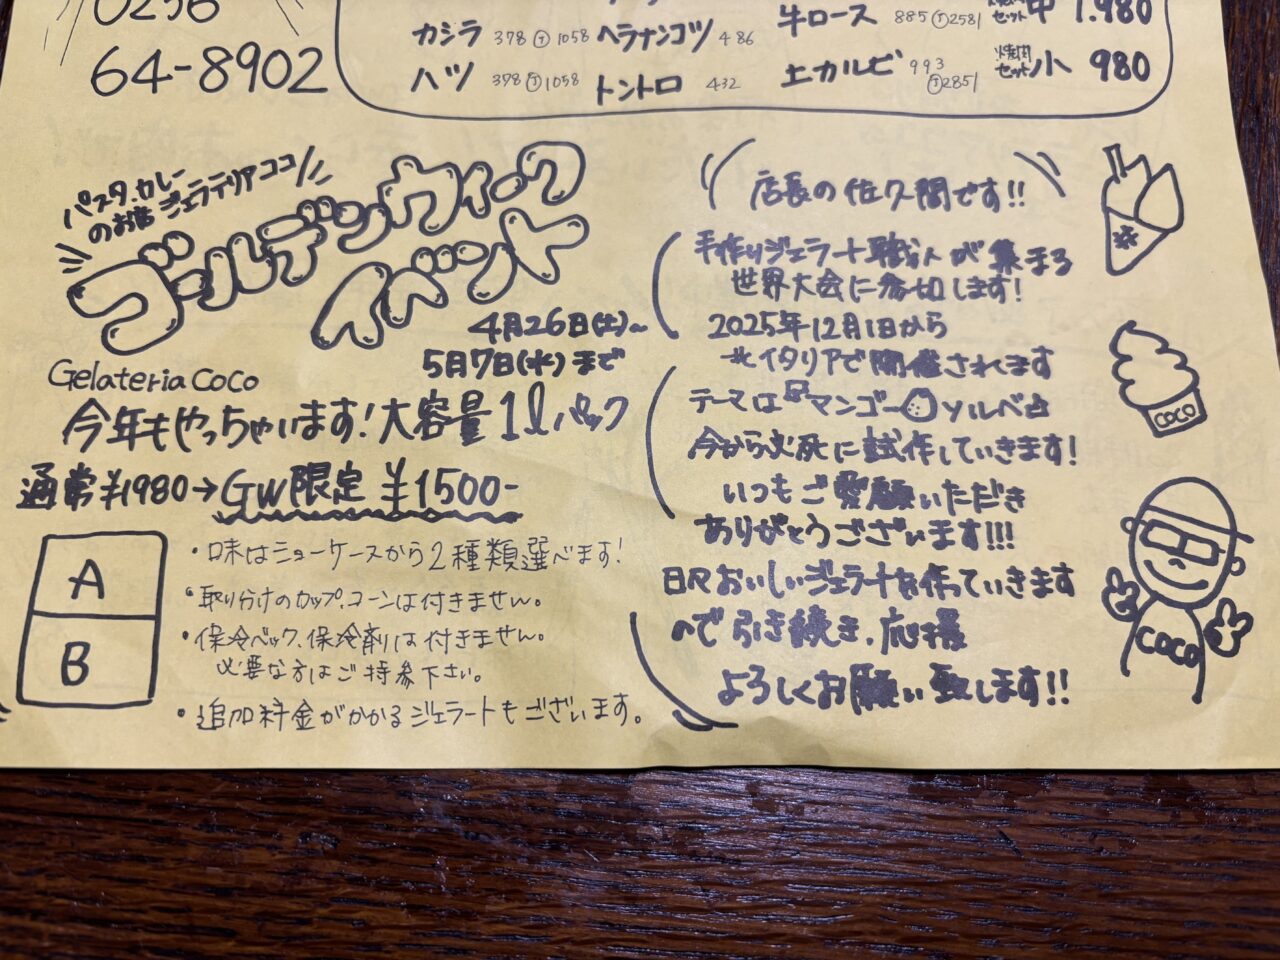 0256
64-8902
カシラ 378 Ⓣ1058
ハツ 378 Ⓣ1058
ヘラナンコツ 486
トントロ 432
牛ロース 885 Ⓣ2581
上カルビ 993 Ⓣ2851
焼肉セット中 1.980
焼肉セット小 980
パスタ、カレー
のお店 ジェラテリアココ
ゴールデンウィーク
イベント
4月26日(土)~
5月7日(水)まで
Gelateria CoCo
今年もやっちゃいます!大容量1ℓパック
通常¥1980→GW限定 ¥1500-
A
B
・味はショーケースから2種類選べます!
・取り分けのカップ、コーンは付きません。
・保冷バック、保冷剤は付きません。
必要な方はご持参下さい。
・追加料金がかかるジェラートもございます。
店長の佐久間です!!
手作りジェラート職人が集まる
世界大会に参加します!
2025年12月1日から
北イタリアで開催されます
テーマは『マンゴーソルベ』
今から必死に試作していきます!
いつもご愛顧いただき
ありがとうございます!!!
日々おいしいジェラートを作っていきます
ので引き続き、応援
よろしくお願い致します!!
COCO
COCO